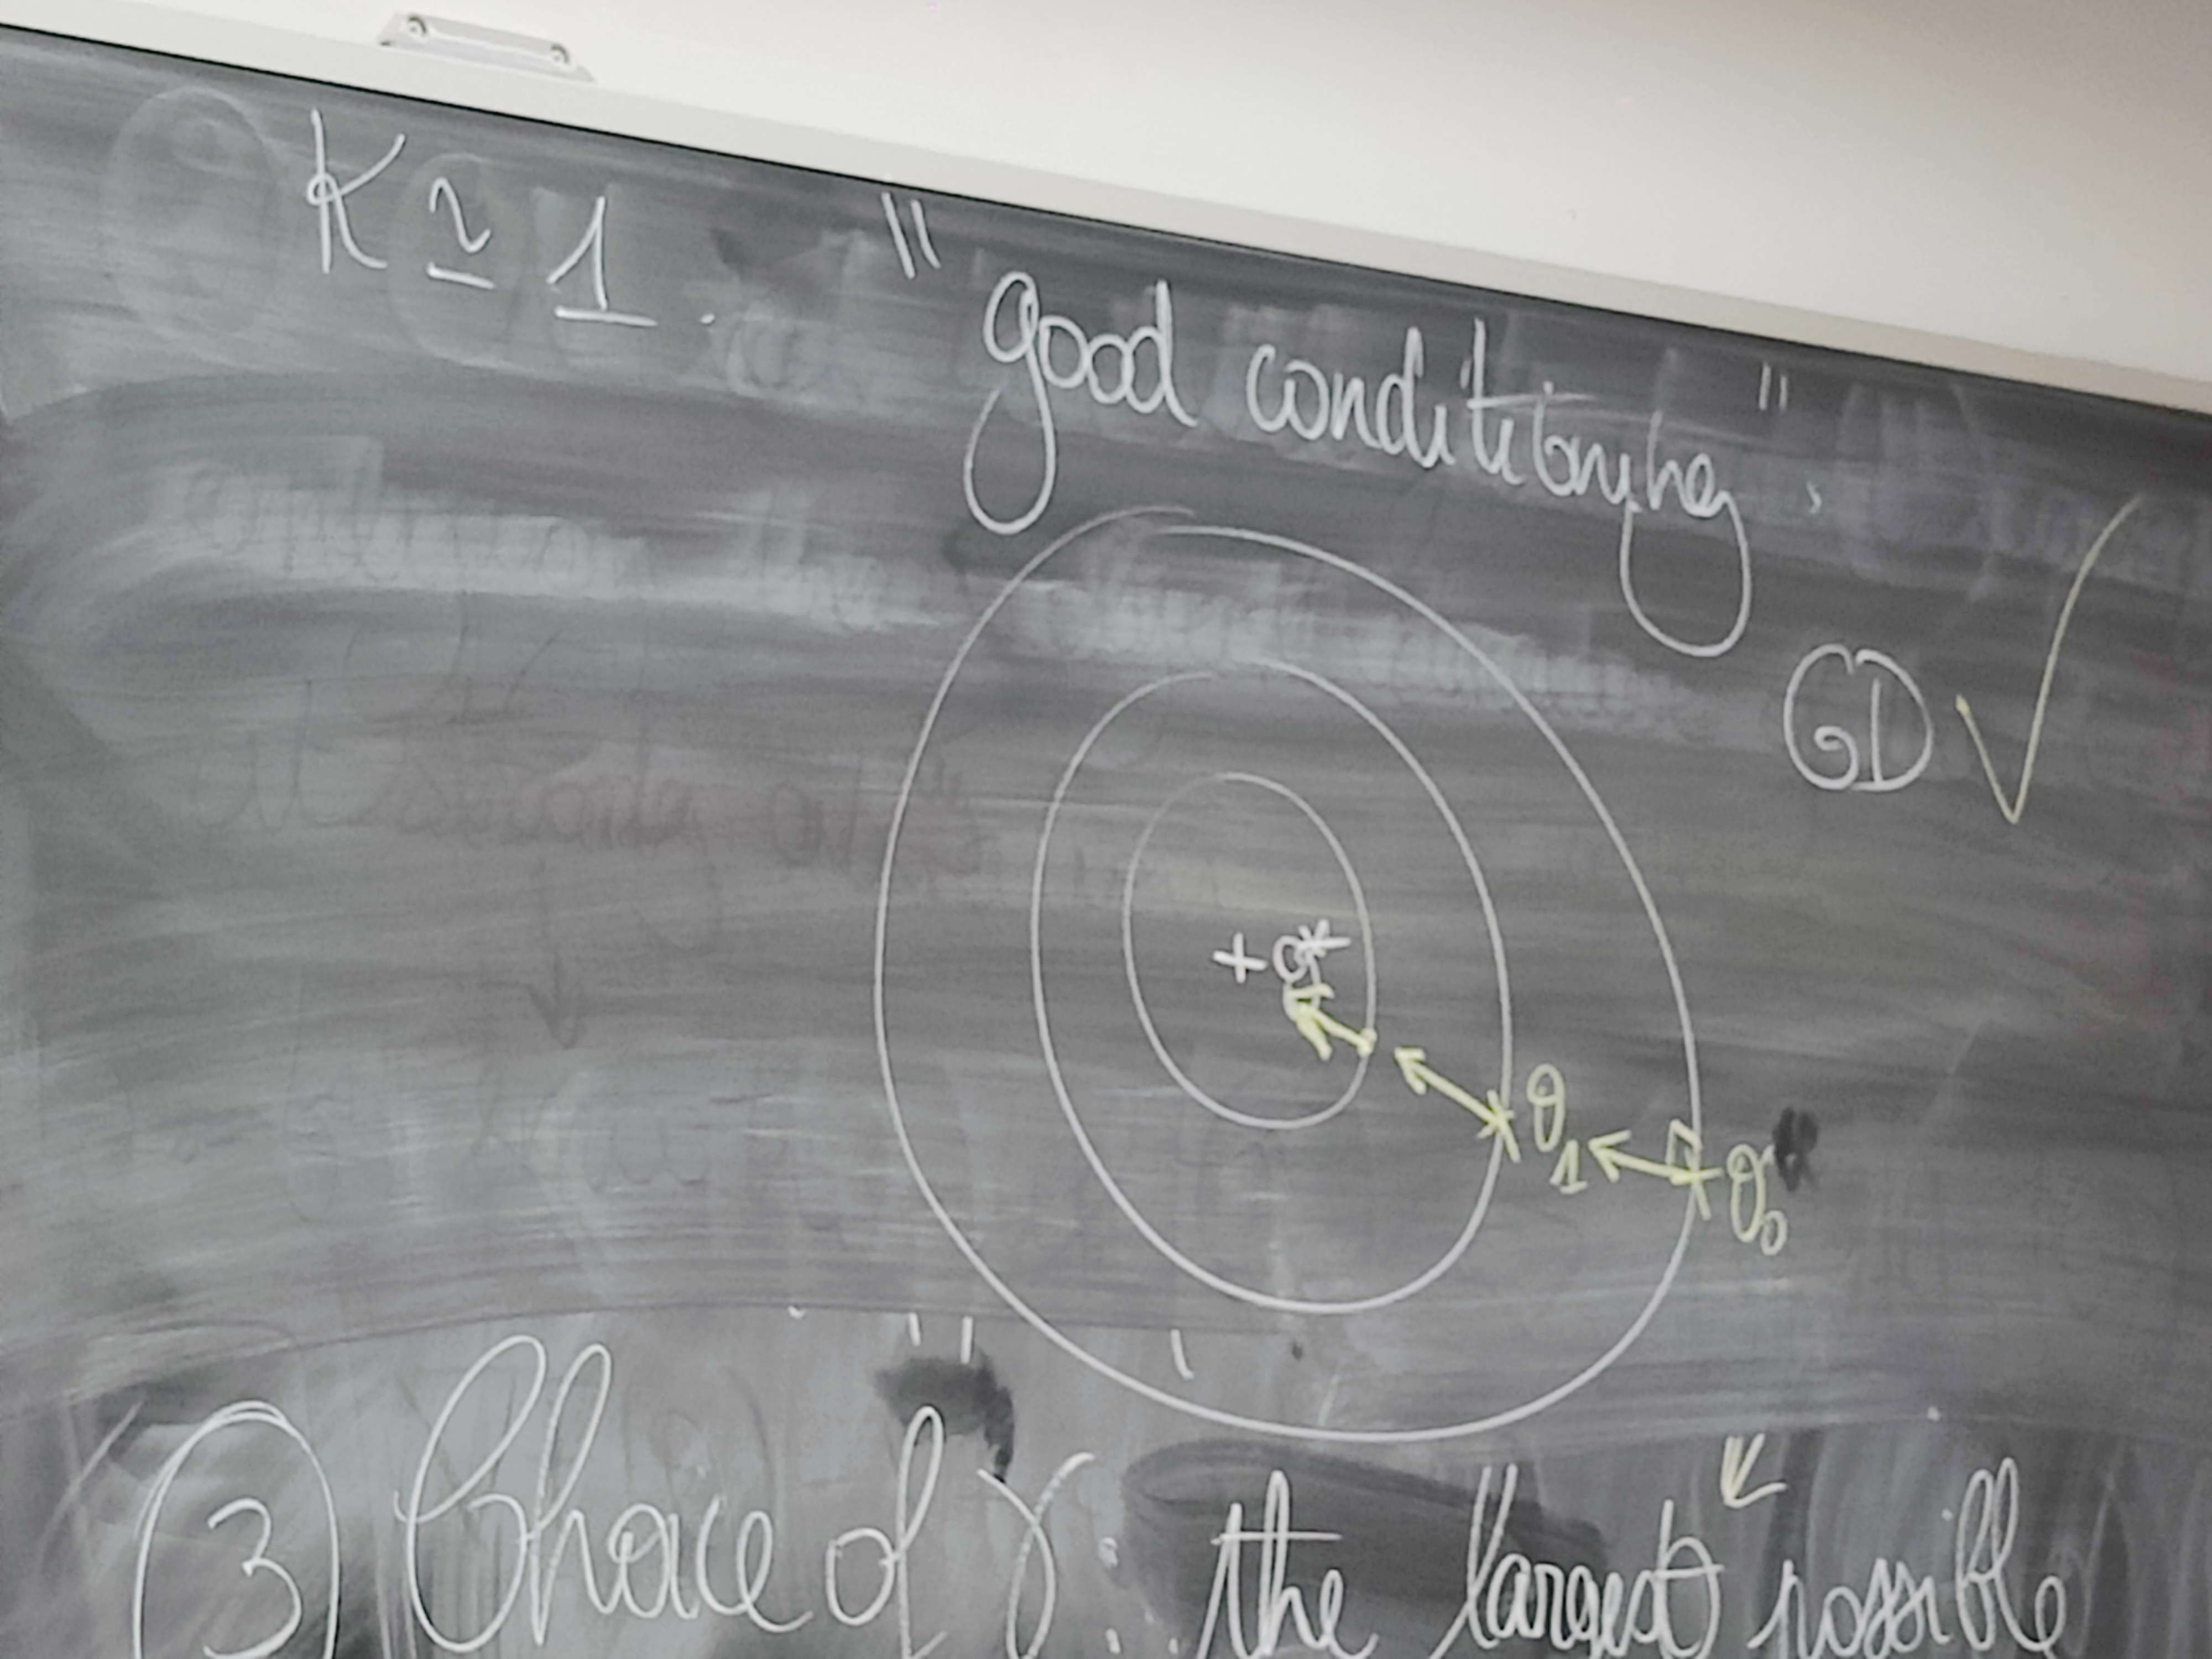 K ≃ 1. "good conditioning"
GD ✓
+ θ*
θ1
θ0
③ Choice of γ: the largest possible